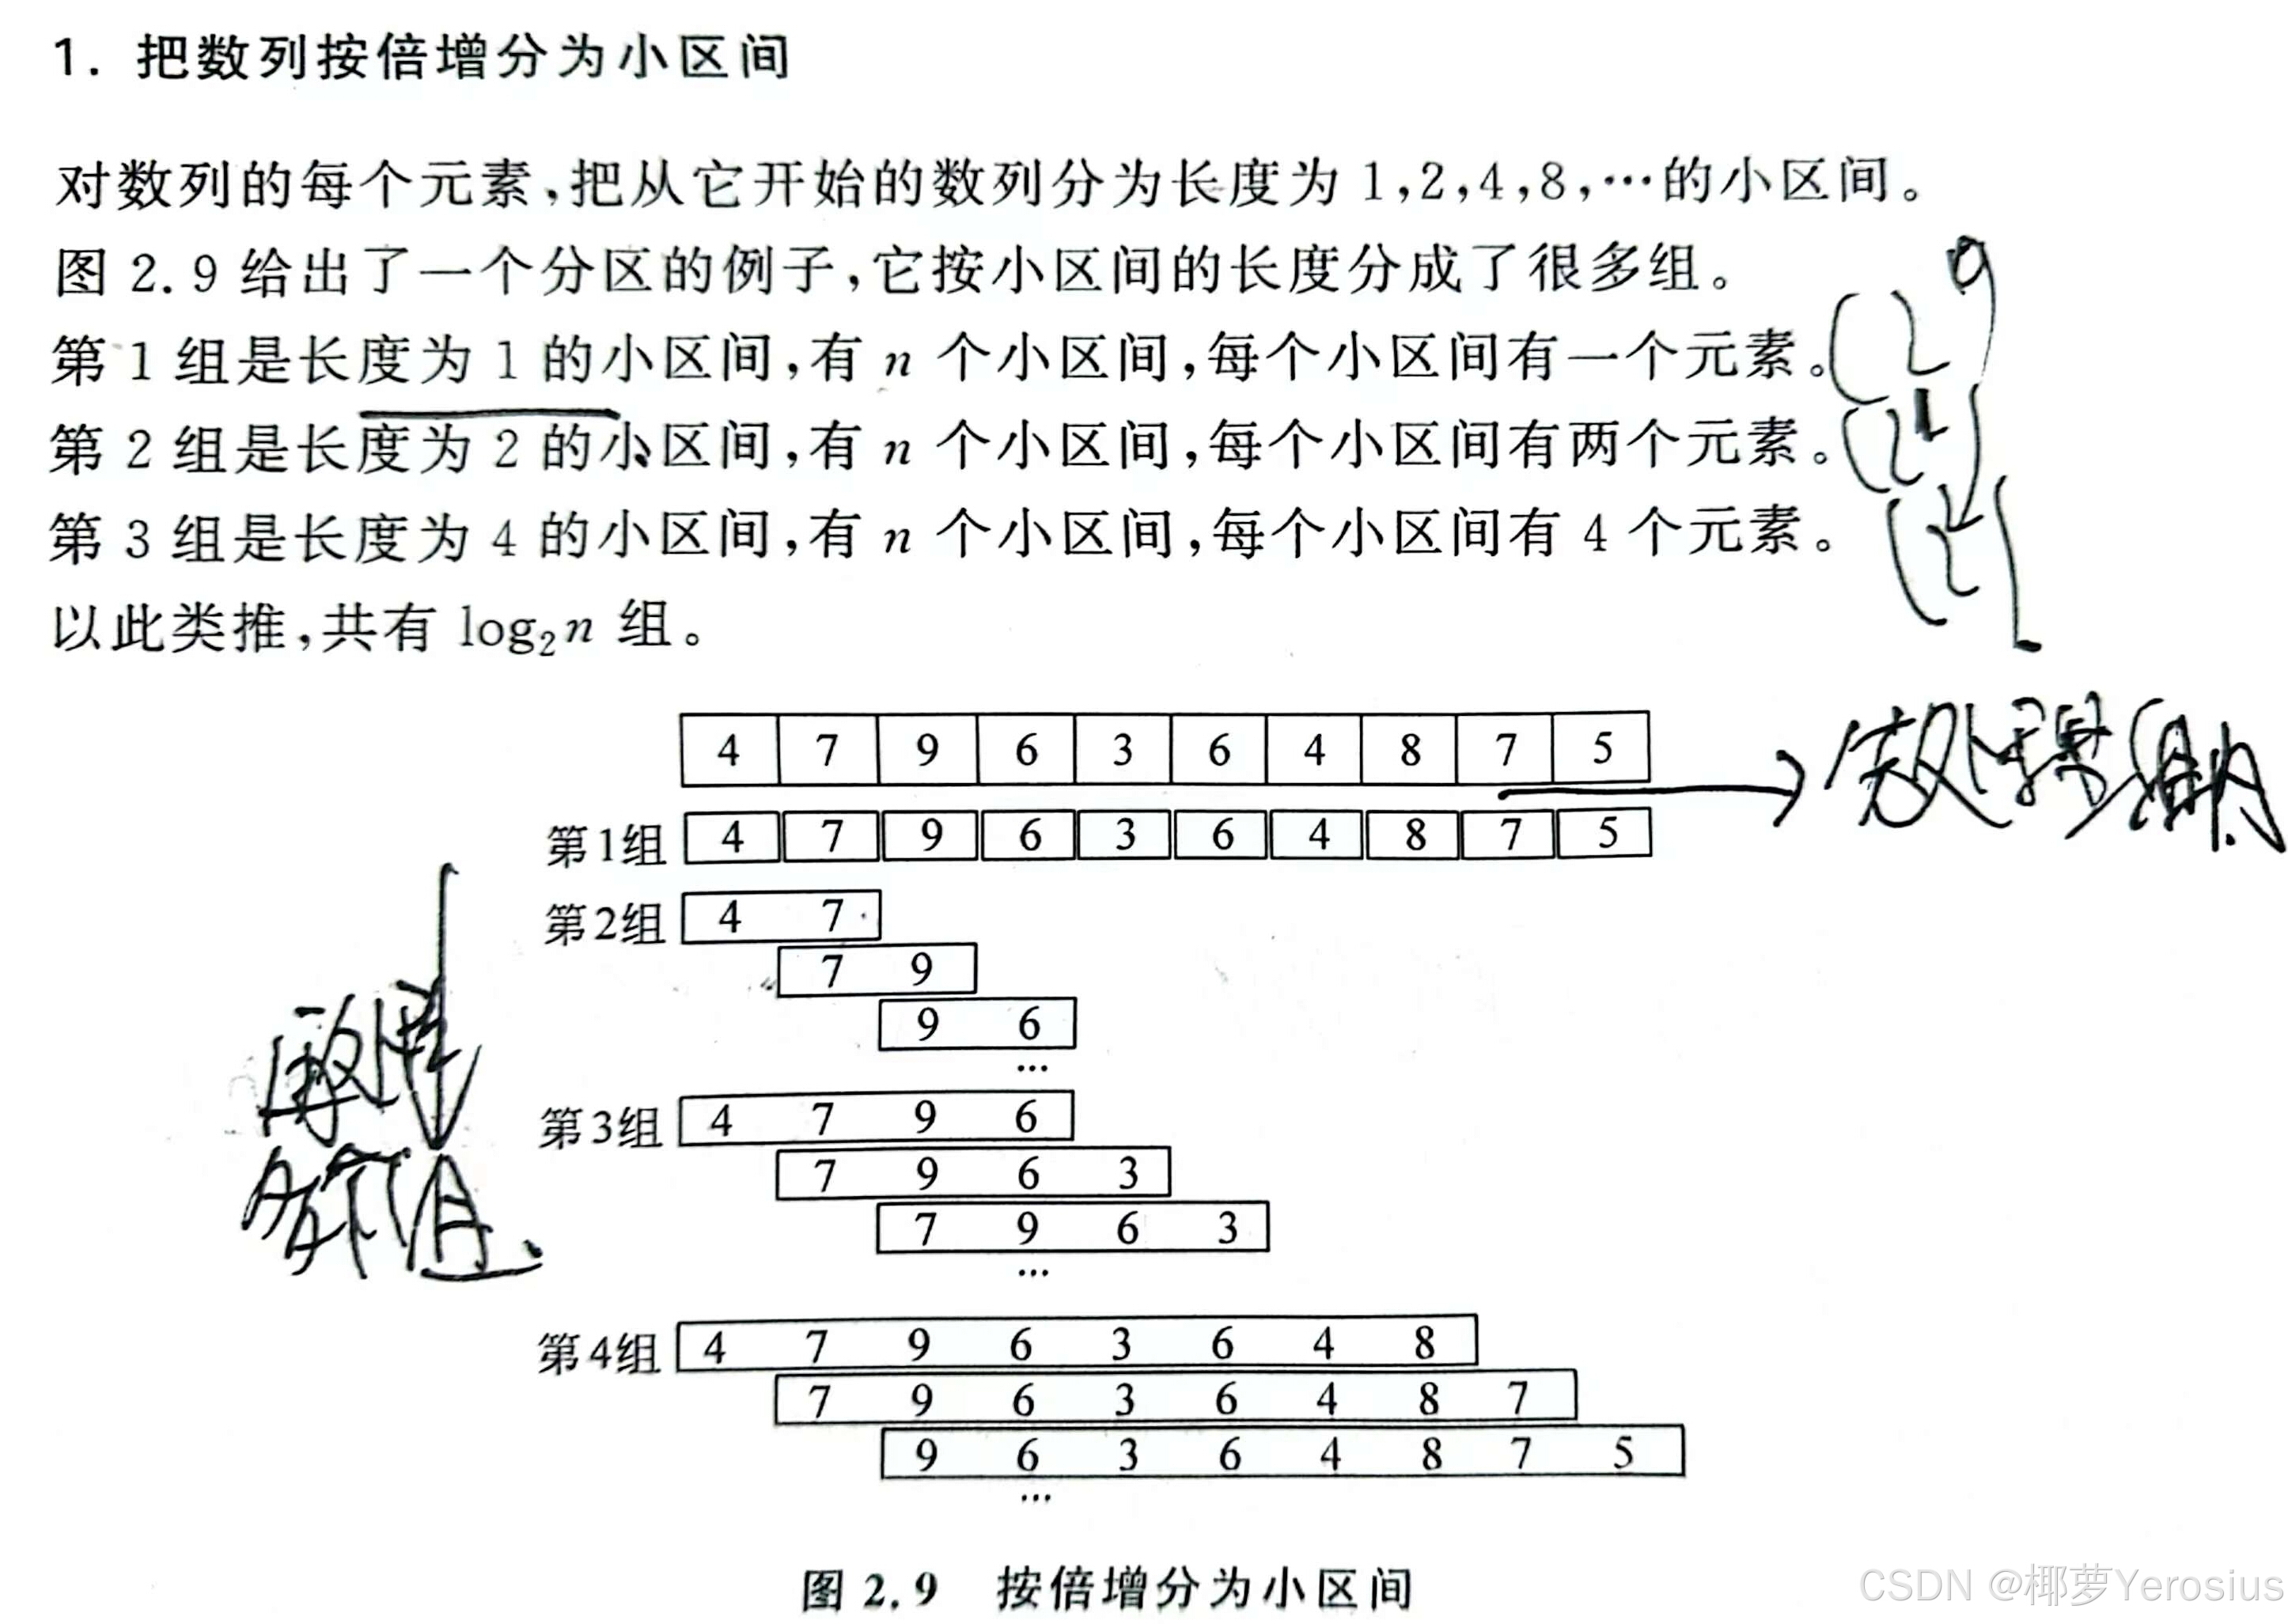 1. 把数列按倍增分为小区间
对数列的每个元素,把从它开始的数列分为长度为 1,2,4,8,…的小区间。
图 2.9 给出了一个分区的例子,它按小区间的长度分成了很多组。
第 1 组是长度为 1 的小区间,有 n 个小区间,每个小区间有一个元素。
第 2 组是长度为 2 的小区间,有 n 个小区间,每个小区间有两个元素。
第 3 组是长度为 4 的小区间,有 n 个小区间,每个小区间有 4 个元素。
以此类推,共有 log₂n 组。
4 7 9 6 3 6 4 8 7 5
第1组 4 7 9 6 3 6 4 8 7 5
第2组 4 7
7 9
9 6
…
第3组 4 7 9 6
7 9 6 3
7 9 6 3
…
第4组 4 7 9 6 3 6 4 8
7 9 6 3 6 4 8 7
9 6 3 6 4 8 7 5
…
图 2.9 按倍增分为小区间
CSDN @椰萝Yerosius